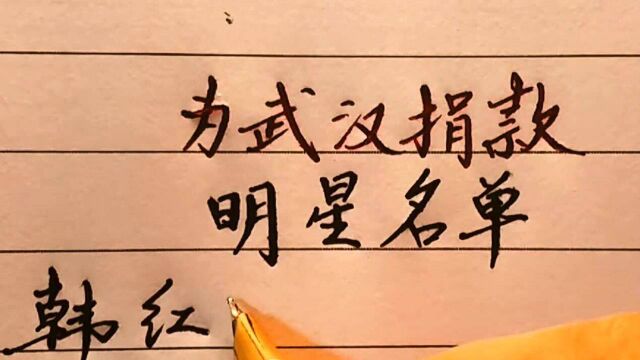 为武汉捐款
明星名单
韩红